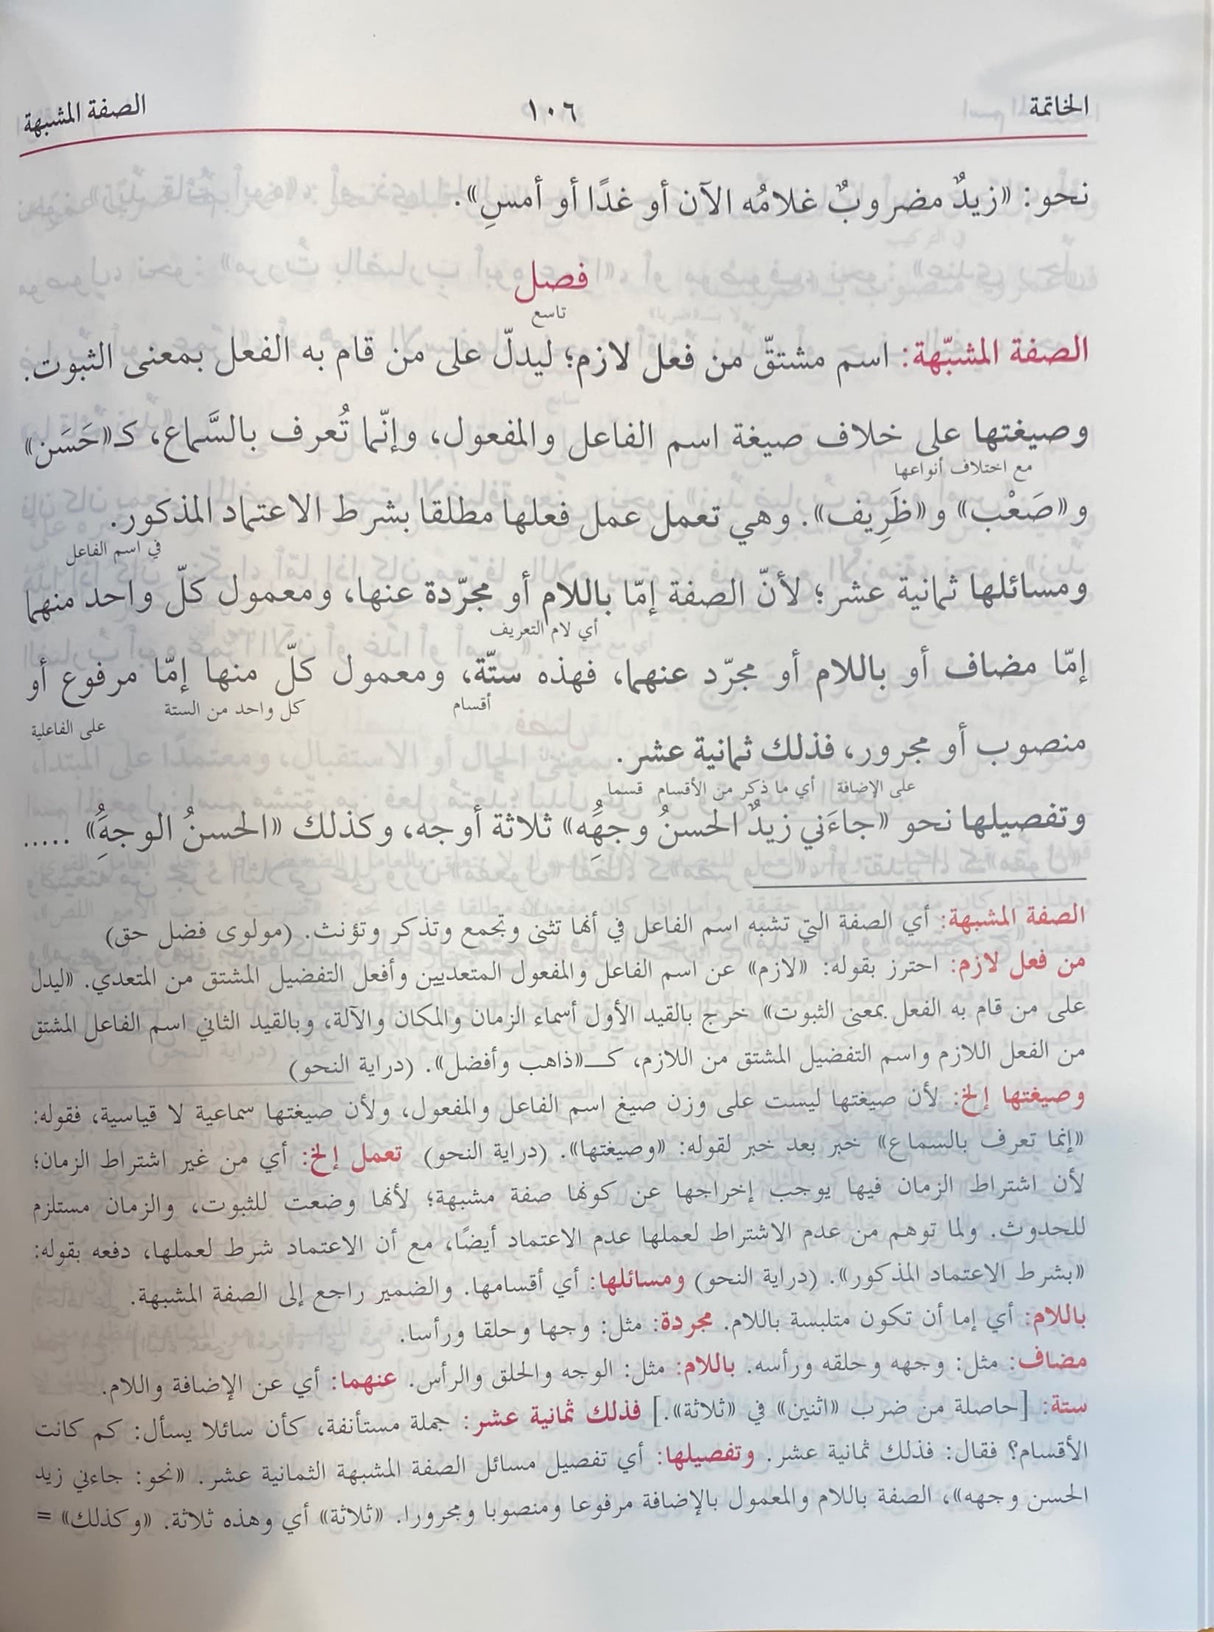 الخاتمة ١٠٦ الصفة المشبهة
نحو: «زيدٌ مضروبٌ غلامُه الآن أو غدًا أو أمسِ».
فصل
تاسع
الصفة المشبّهة: اسم مشتقّ من فعل لازم؛ ليدلّ على من قام به الفعل بمعنى الثبوت.
وصيغتها على خلاف صيغة اسم الفاعل والمفعول، وإنّما تُعرف بالسَّماع، كـ«حَسَن»
مع اختلاف أنواعها
و«صَعْب» و«ظَرِيف». وهي تعمل عمل فعلها مطلقا بشرط الاعتماد المذكور.
في اسم الفاعل
ومسائلها ثمانية عشر؛ لأنّ الصفة إمّا باللام أو مجرّدة عنها، ومعمول كلّ واحد منهما
أي لام التعريف
إمّا مضاف أو باللام أو مجرّد عنهما، فهذه ستّة، ومعمول كلّ منها إمّا مرفوع أو
أقسام كل واحد من الستة على الفاعلية
منصوب أو مجرور، فذلك ثمانية عشر.
على الإضافة أي ما ذكر من الأقسام قسما
وتفصيلها نحو «جاءَني زيدٌ الحسنُ وجهُِه» ثلاثة أوجه، وكذلك «الحسنُ الوجهَُِ» .....
الصفة المشبهة: أي الصفة التي تشبه اسم الفاعل في أنها تثنى وتجمع وتذكر وتؤنث. (مولوى فضل حق)
من فعل لازم: احترز بقوله: «لازم» عن اسم الفاعل والمفعول المتعديين وأفعل التفضيل المشتق من المتعدي. «ليدل
على من قام به الفعل بمعنى الثبوت» خرج بالقيد الأول أسماء الزمان والمكان والآلة، وبالقيد الثاني اسم الفاعل المشتق
من الفعل اللازم واسم التفضيل المشتق من اللازم، كـ«ذاهب وأفضل». (دراية النحو)
وصيغتها إلخ: لأن صيغتها ليست على وزن صيغ اسم الفاعل والمفعول، ولأن صيغتها سماعية لا قياسية، فقوله:
«إنما تعرف بالسماع» خبر بعد خبر لقوله: «وصيغتها». (دراية النحو) تعمل إلخ: أي من غير اشتراط الزمان؛
لأن اشتراط الزمان فيها يوجب إخراجها عن كونها صفة مشبهة؛ لأنها وضعت للثبوت، والزمان مستلزم
للحدوث. ولما توهم من عدم الاشتراط لعملها عدم الاعتماد أيضًا، مع أن الاعتماد شرط لعملها، دفعه بقوله:
«بشرط الاعتماد المذكور». (دراية النحو) ومسائلها: أي أقسامها. والضمير راجع إلى الصفة المشبهة.
باللام: أي إما أن تكون متلبسة باللام. مجردة: مثل: وجها وحلقا ورأسا.
مضاف: مثل: وجهه وحلقه ورأسه. باللام: مثل: الوجه والحلق والرأس. عنهما: أي عن الإضافة واللام.
ستة: [حاصلة من ضرب «اثنين» في «ثلاثة».] فذلك ثمانية عشر: جملة مستأنفة، كأن سائلا يسأل: كم كانت
الأقسام؟ فقال: فذلك ثمانية عشر. وتفصيلها: أي تفصيل مسائل الصفة المشبهة الثمانية عشر. «نحو: جاءني زيد
الحسن وجهه»، الصفة باللام والمعمول بالإضافة مرفوعا ومنصوبا ومجرورا. «ثلاثة» أي وهذه ثلاثة. «وكذلك» =